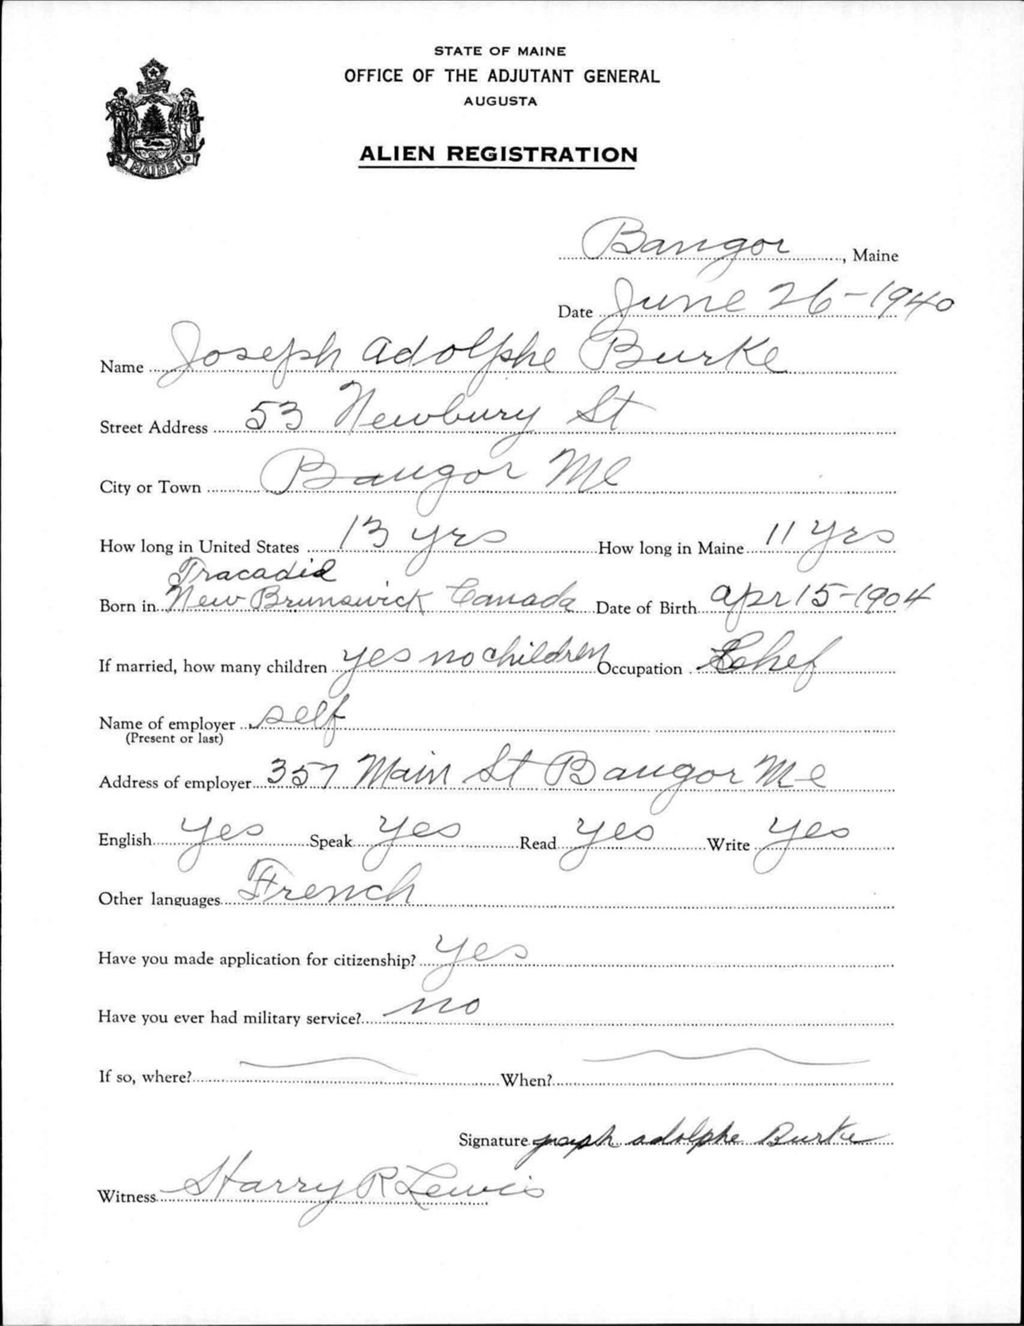 STATE OF MAINE
OFFICE OF THE ADJUTANT GENERAL
AUGUSTA
ALIEN REGISTRATION
Bangor, Maine
Date June 26-1940
Name Joseph Adolphe Burke
Street Address 53 Newbury St
City or Town Bangor Me
How long in United States 13 yrs How long in Maine 11 yrs
Tracadie
Born in New Brunswick Canada Date of Birth Apr 15-1904
If married, how many children yes no children Occupation Chef
Name of employer self
(Present or last)
Address of employer 357 Main St Bangor Me
English Yes Speak Yes Read Yes Write Yes
Other languages French
Have you made application for citizenship? Yes
Have you ever had military service? no
If so, where? When?
Signature Joseph adolphe Burke
Witness Harry R Lewis
MAINE